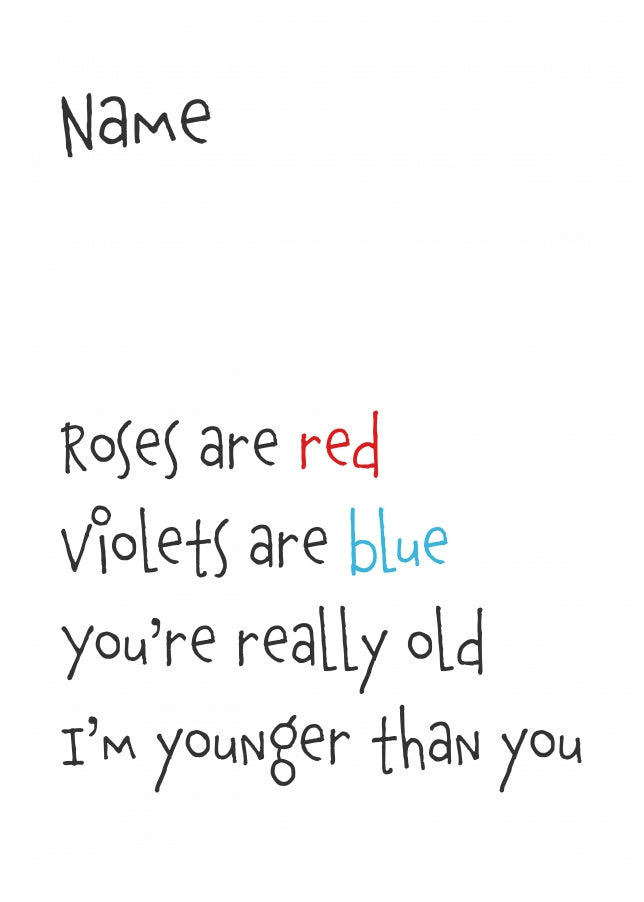 Name
Roses are red
Violets are blue
you're really old
I'm younger than you